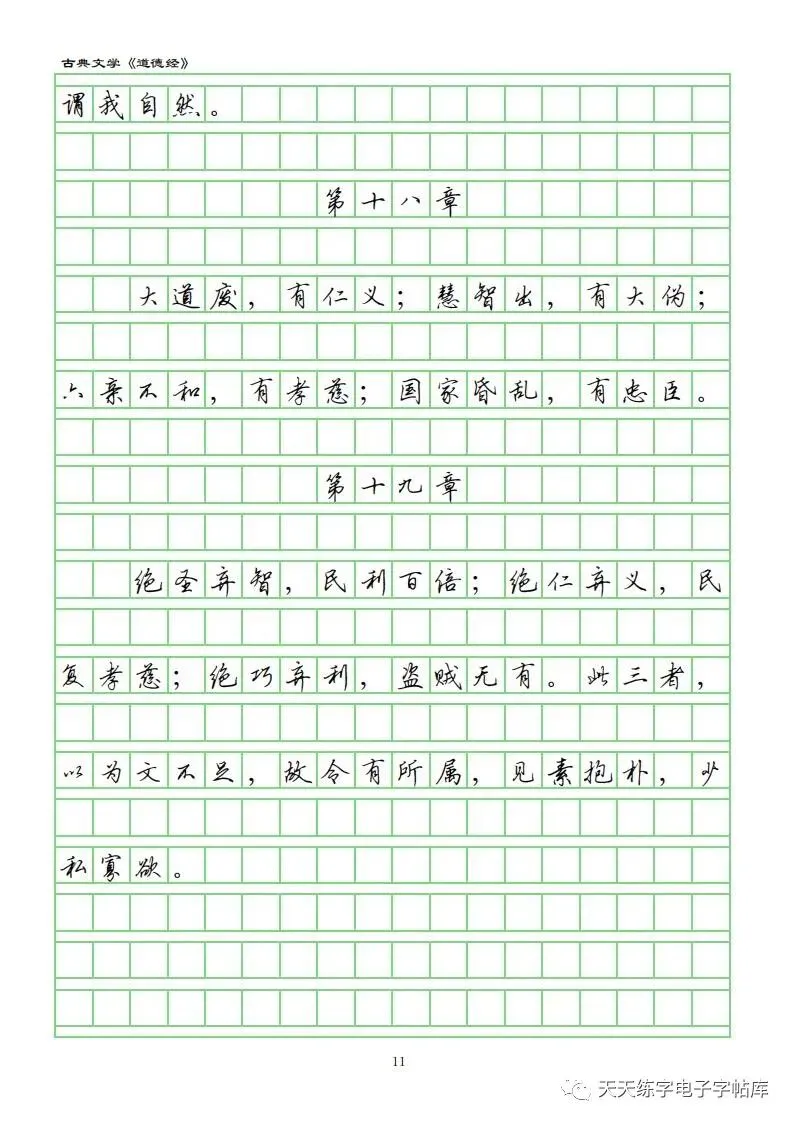 古典文学《道德经》
谓我自然。
第十八章
大道废，有仁义；慧智出，有大伪；
六亲不和，有孝慈；国家昏乱，有忠臣。
第十九章
绝圣弃智，民利百倍；绝仁弃义，民
复孝慈；绝巧弃利，盗贼无有。此三者，
以为文不足，故令有所属，见素抱朴，少
私寡欲。
11
天天练字电子字帖库